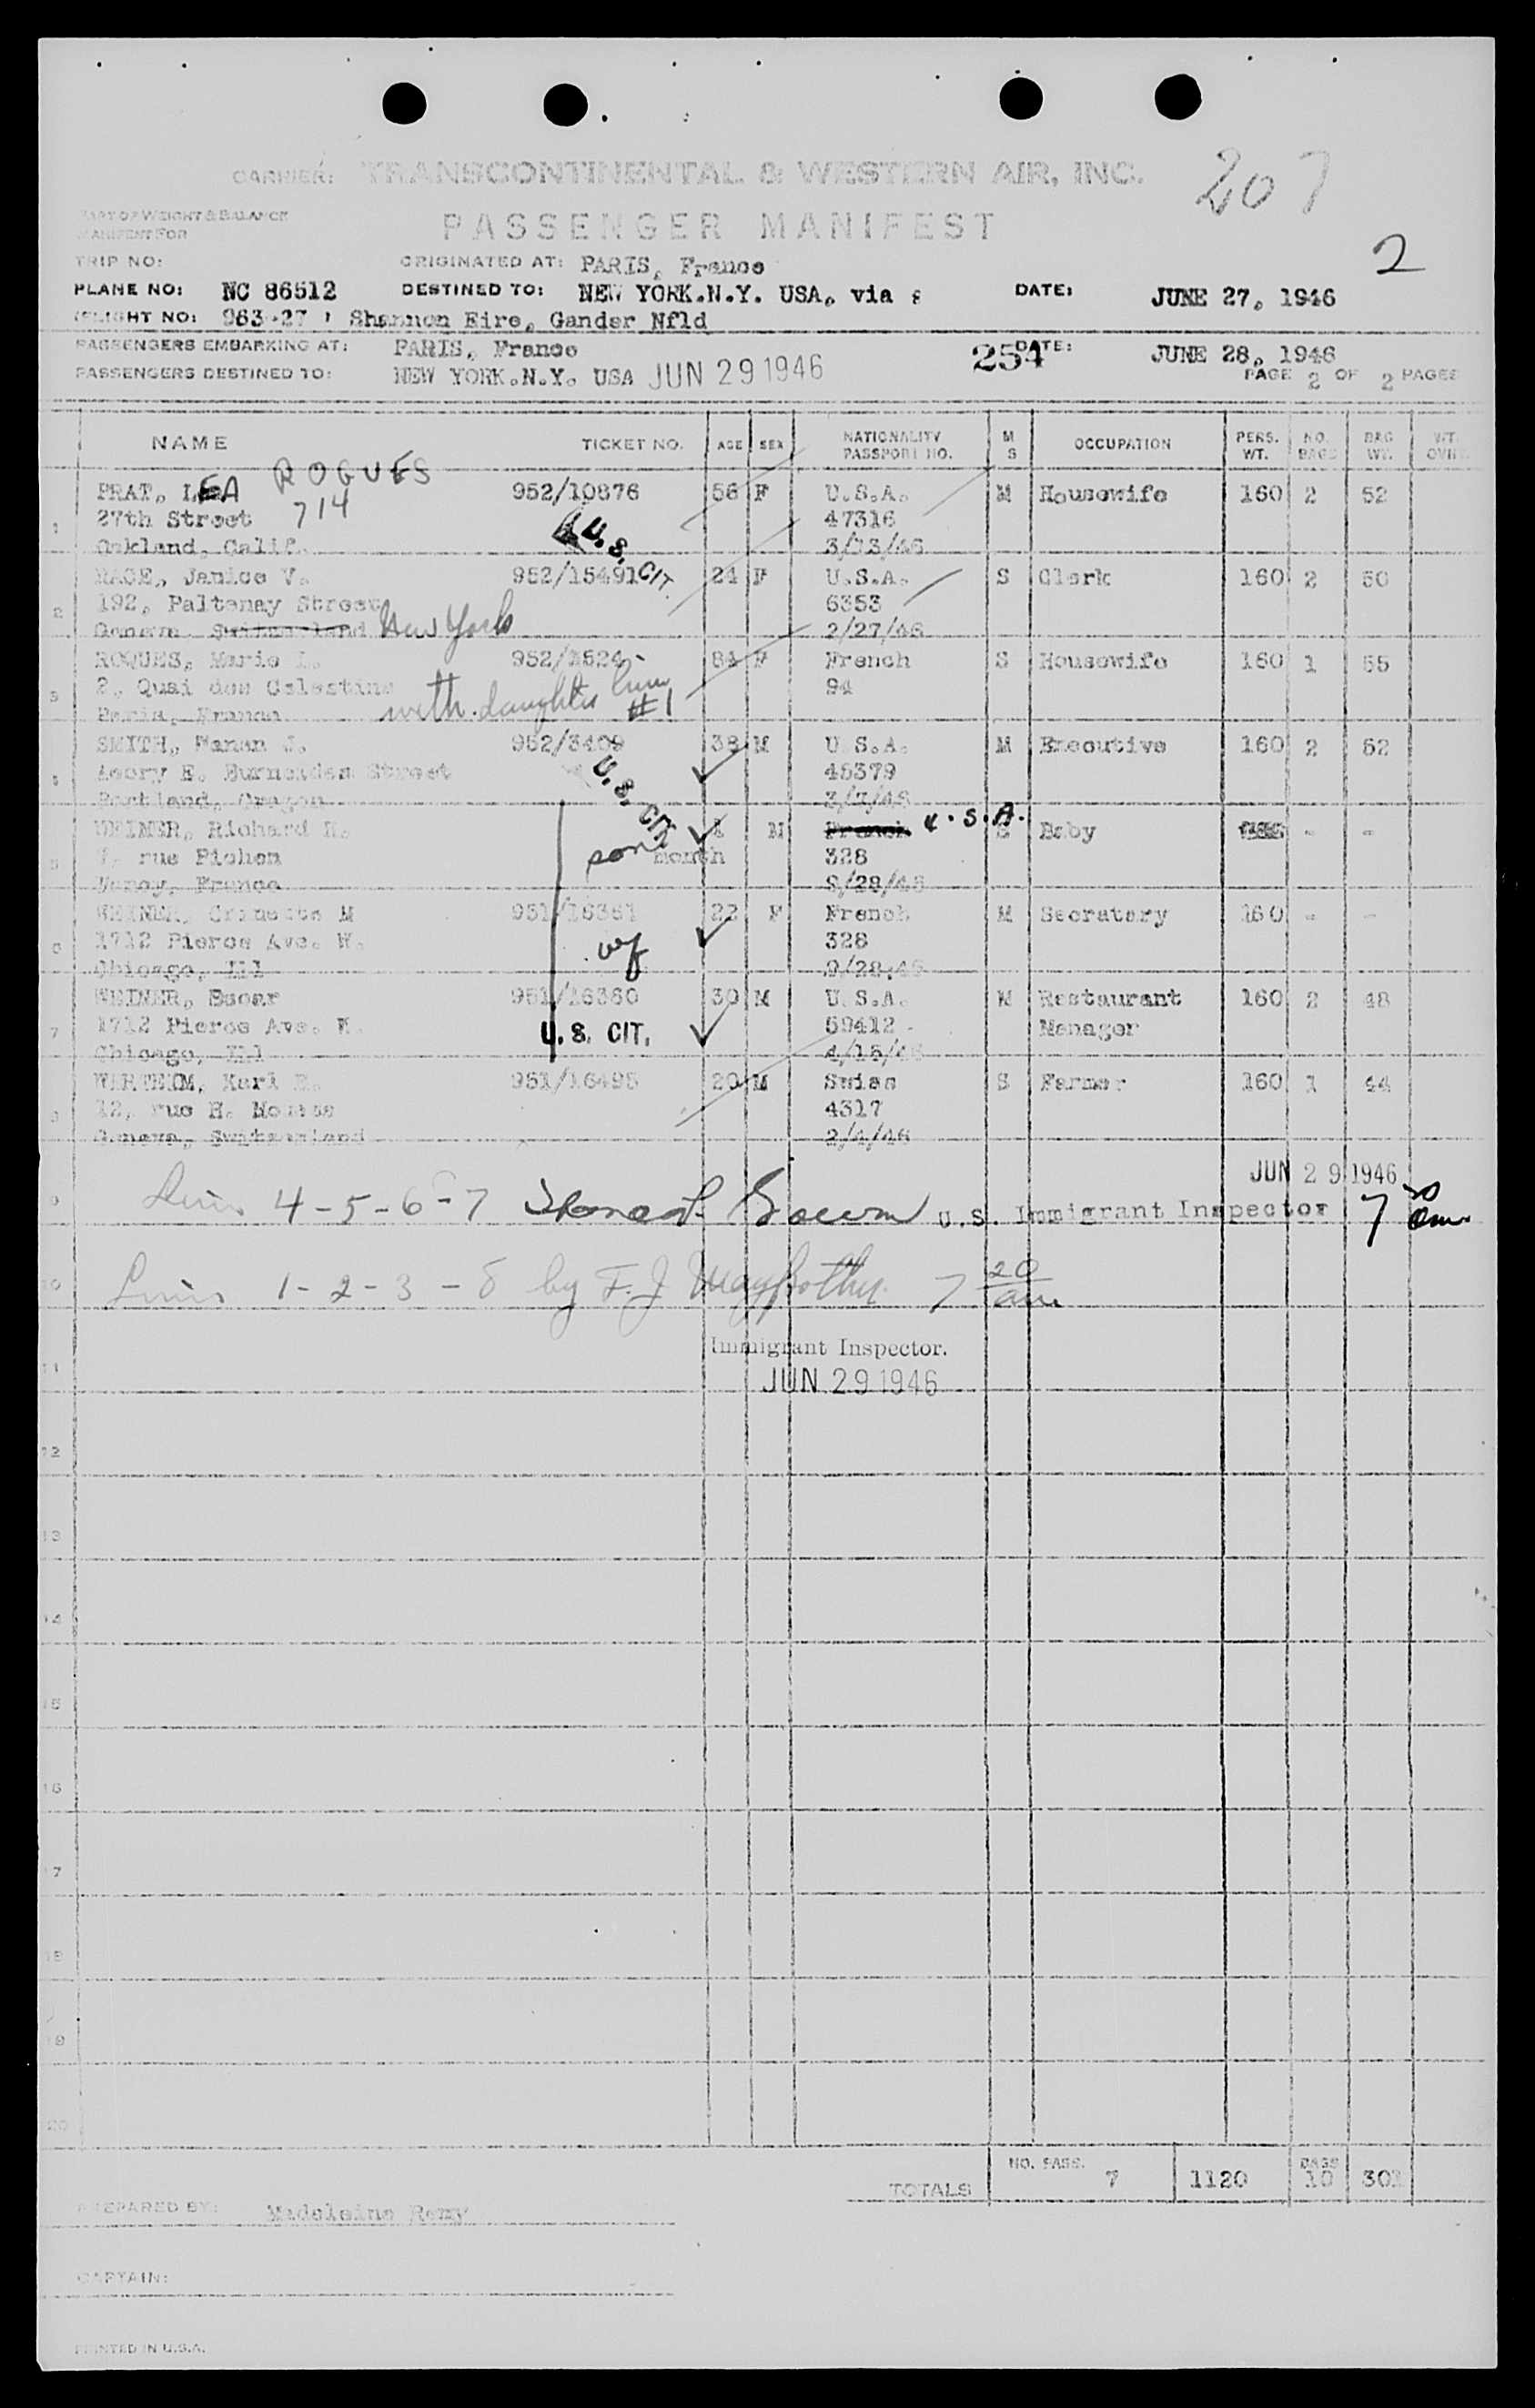 207
CARRIER: TRANSCONTINENTAL & WESTERN AIR, INC.
PART OF WEIGHT & BALANCE
MANIFEST FOR
PASSENGER MANIFEST
2
TRIP NO: ORIGINATED AT: PARIS, France
PLANE NO: NC 86512 DESTINED TO: NEW YORK.N.Y. USA, via : DATE: JUNE 27, 1946
FLIGHT NO: 963-27 Shannon Eire, Gander Nfld
PASSENGERS EMBARKING AT: PARIS, France 254 DATE: JUNE 28, 1946
PASSENGERS DESTINED TO: NEW YORK.N.Y. USA JUN 29 1946 PAGE 2 OF 2 PAGES
NAME TICKET NO. AGE SEX NATIONALITY PASSPORT NO. M S OCCUPATION PERS. WT. NO. BAGS BAG WT. WT. OVER
ROGUES
1 PRAT, LEA 952/10876 56 F U.S.A. M Housewife 160 2 52
27th Street 714 47316
Oakland, Calif. U.S. CIT. 3/13/46
2 RACE, Janice V. 952/15491 24 F U.S.A. S Clerk 160 2 50
192, Paltenay Street 6353
Geneva, Switzerland New York 2/27/46
3 ROQUES, Marie L. 952/1524 84 F French S Housewife 160 1 55
2, Quai des Celestins 94
Paris, France with daughter line #1
4 SMITH, J. 952/3409 38 M U.S.A. M Executive 160 2 52
E. Street 45379
Portland, Oregon U.S. CIT. 3/7/46
5 WEINER, Richard 1 M French U.S.A. S Baby - -
rue Pichon son month 328
Nancy, France 9/28/45
6 WEINER, M 951/16361 22 F French M Secretary 160 - -
1712 Pierce Ave. W. wf 328
Chicago, Ill 9/28/45
7 WEINER, Oscar 951/16360 30 M U.S.A. M Restaurant 160 2 48
1712 Pierce Ave. W. U.S. CIT. 59412 Manager
Chicago, Ill 4/15/46
8 WERTHEIM, Karl 951/16495 20 M Swiss S Farmer 160 1 44
12, rue 4317
Geneva, Switzerland 2/4/46
JUN 29 1946
9 Lines 4-5-6-7 U.S. Immigrant Inspector 7 30 am
10 Lines 1-2-3-8 by F. J. 7 20 am
Immigrant Inspector.
11 JUN 29 1946
12
13
14
15
16
17
18
19
20
TOTALS NO. PASS. 7 1120 BAGS 10 301
PREPARED BY: Madeleine Remy
CAPTAIN:
PRINTED IN U.S.A.